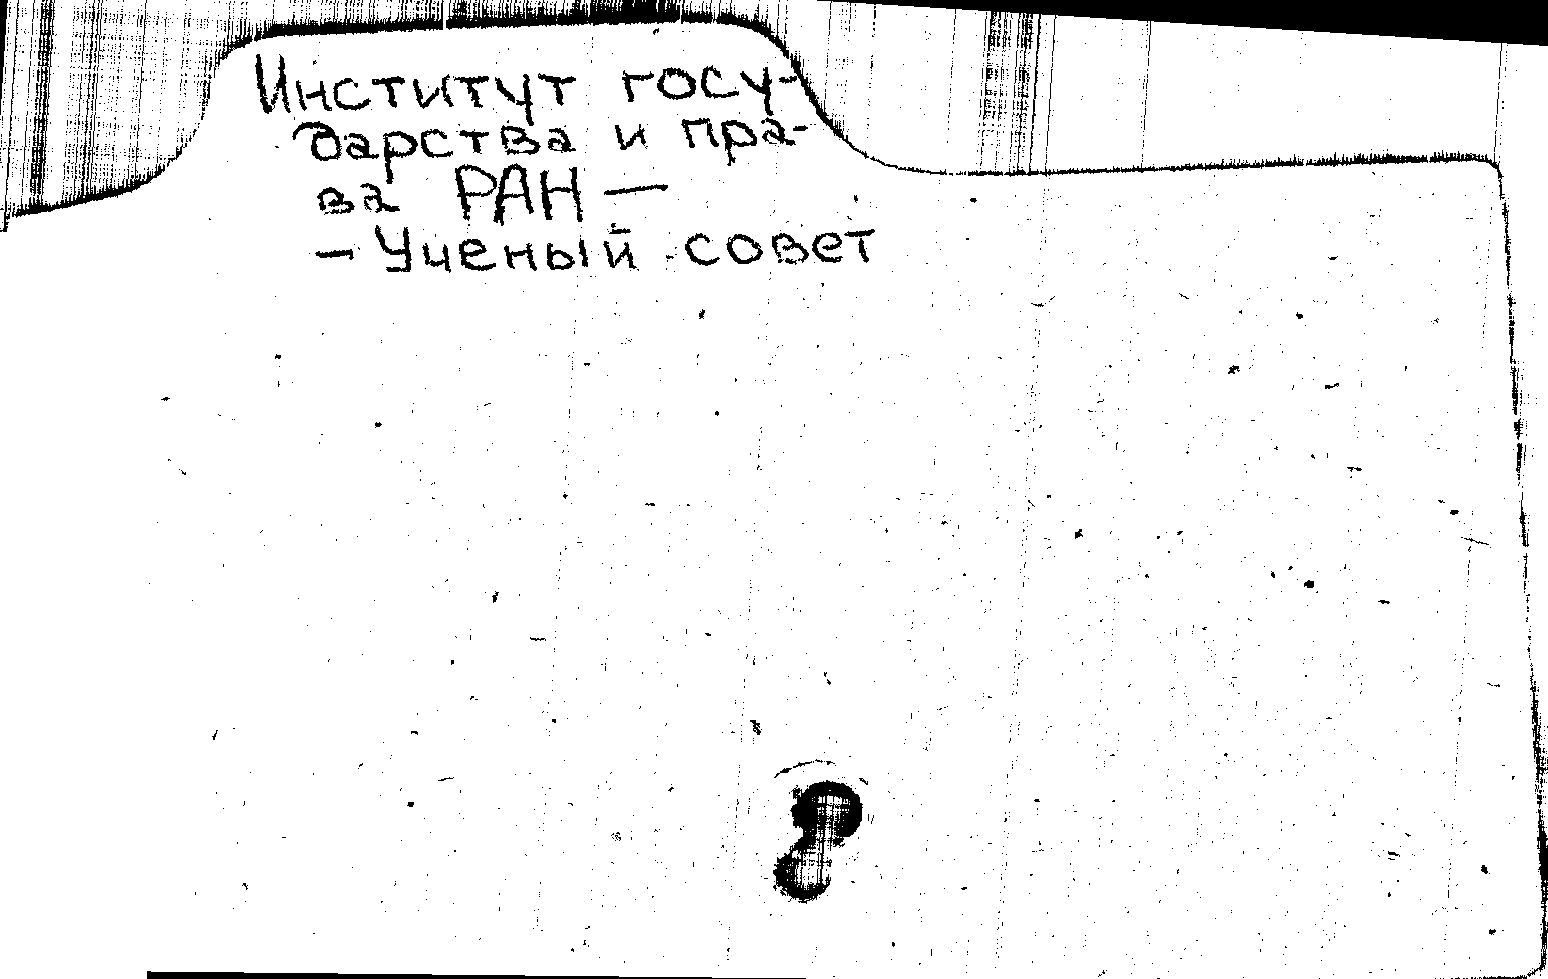 Институт госу-
дарства и пра-
ва РАН —
— Ученый совет